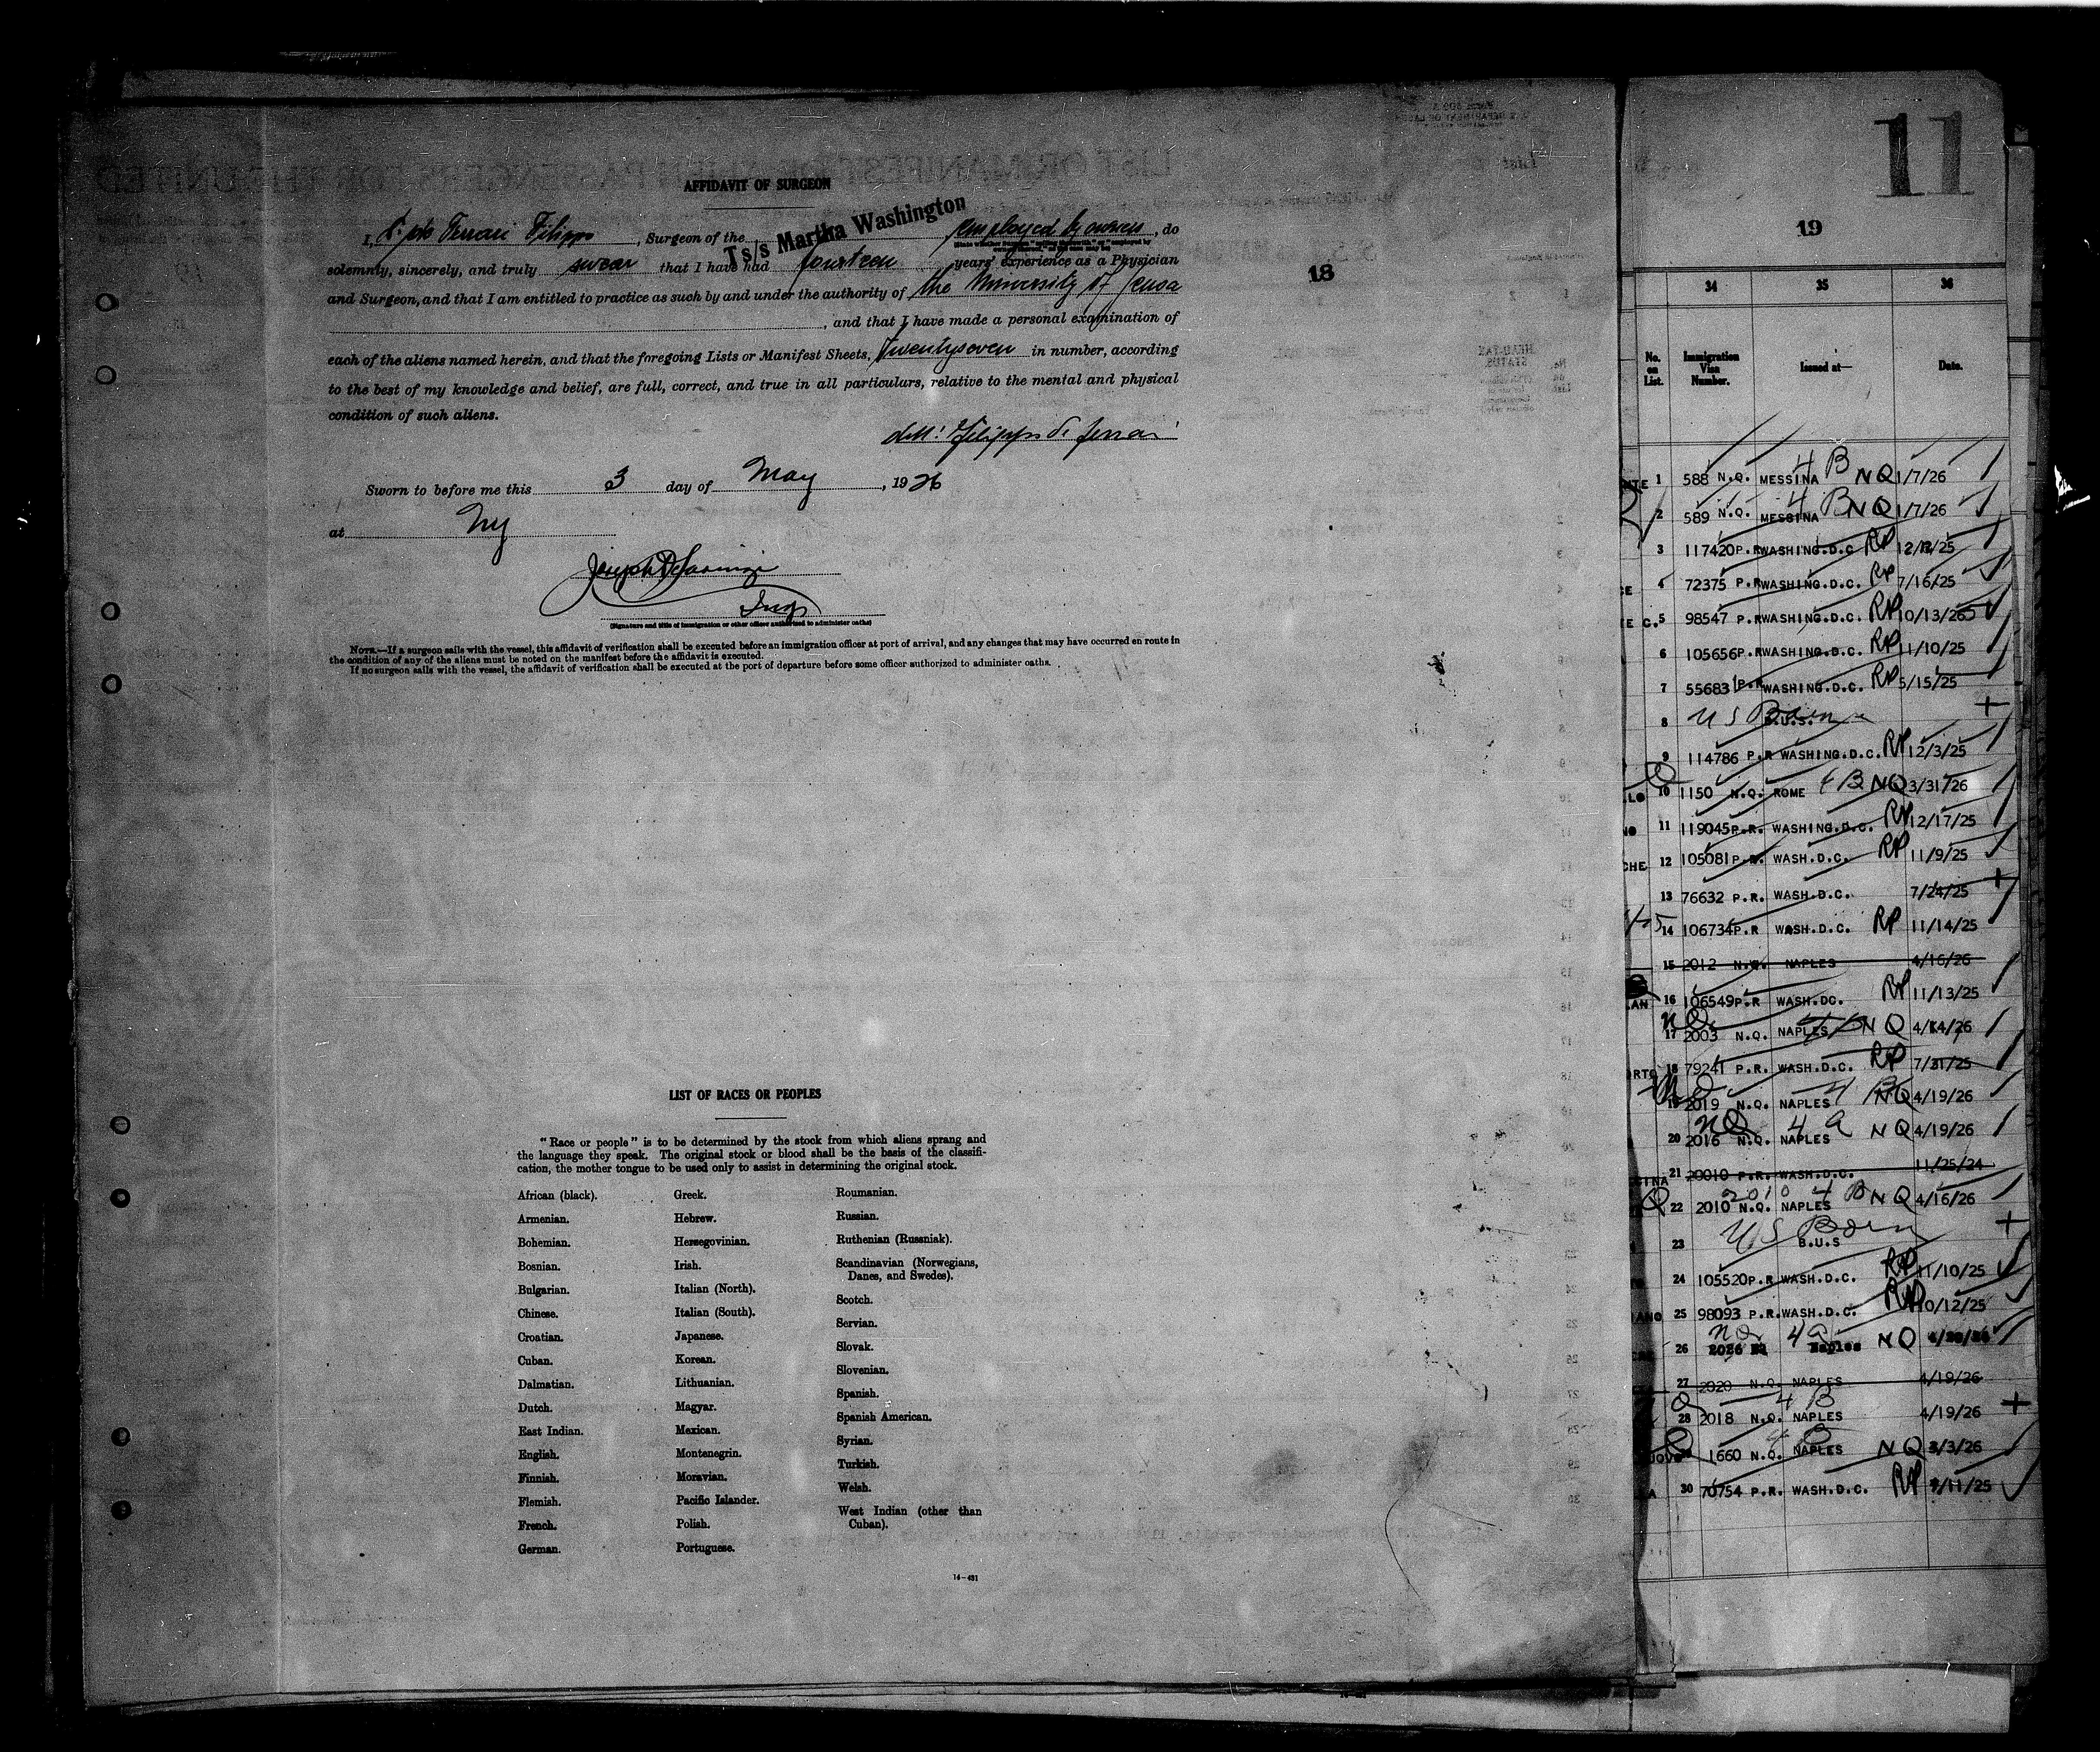 11
AFFIDAVIT OF SURGEON
I, Ferrari Filippo, Surgeon of the Ts/s Martha Washington employed by owners, do
solemnly, sincerely, and truly swear that I have had fourteen years' experience as a Physician
and Surgeon, and that I am entitled to practice as such by and under the authority of the University of Genoa
, and that I have made a personal examination of
each of the aliens named herein, and that the foregoing Lists or Manifest Sheets, Twentyseven in number, according
to the best of my knowledge and belief, are full, correct, and true in all particulars, relative to the mental and physical
condition of such aliens.
Sworn to before me this 3 day of May, 1926
at NY
Insp
(Signature and title of immigration or other officer authorized to administer oaths)
NOTE.—If a surgeon sails with the vessel, this affidavit of verification shall be executed before an immigration officer at port of arrival, and any changes that may have occurred en route in
the condition of any of the aliens must be noted on the manifest before the affidavit is executed.
If no surgeon sails with the vessel, the affidavit of verification shall be executed at the port of departure before some officer authorized to administer oaths.
18
LIST OF RACES OR PEOPLES
"Race or people" is to be determined by the stock from which aliens sprang and
the language they speak. The original stock or blood shall be the basis of the classifi-
cation, the mother tongue to be used only to assist in determining the original stock.
African (black).
Armenian.
Bohemian.
Bosnian.
Bulgarian.
Chinese.
Croatian.
Cuban.
Dalmatian.
Dutch.
East Indian.
English.
Finnish.
Flemish.
French.
German.
Greek.
Hebrew.
Herzegovinian.
Irish.
Italian (North).
Italian (South).
Japanese.
Korean.
Lithuanian.
Magyar.
Mexican.
Montenegrin.
Moravian.
Pacific Islander.
Polish.
Portuguese.
Roumanian.
Russian.
Ruthenian (Russniak).
Scandinavian (Norwegians,
Danes, and Swedes).
Scotch.
Servian.
Slovak.
Slovenian.
Spanish.
Spanish American.
Syrian.
Turkish.
Welsh.
West Indian (other than
Cuban).
14-431
19
34 35 36
No. on List. Immigration Visa Number. Issued at— Date.
1 588 N.Q. MESSINA 4 B NQ 1/7/26
2 589 N.Q. MESSINA 4 B NQ 1/7/26
3 117420 P.R WASHING.D.C RP 12/12/25
4 72375 P.R WASHING.D.C. RP 7/16/25
5 98547 P.R WASHING.D.C. RP 10/13/25
6 105656 P.R WASHING.D.C. RP 11/10/25
7 55683 P.R WASHING.D.C. RP 5/15/25
8 US Born B.U.S.
9 114786 P.R WASHING.D.C. RP 12/3/25
10 1150 N.Q. ROME 4 B NQ 3/31/26
11 119045 P.R. WASHING.D.C. RP 12/17/25
12 105081 P.R. WASH.D.C. RP 11/9/25
13 76632 P.R. WASH.D.C. 7/24/25
14 106734 P.R WASH.D.C. RP 11/14/25
15 2012 N.Q. NAPLES 4/16/26
16 106549 P.R WASH.DC. RP 11/13/25
17 2003 N.Q. NAPLES NQ 4/14/26
18 79241 P.R. WASH.D.C. RP 7/31/25
19 2019 N.Q. NAPLES 4 B NQ 4/19/26
20 2016 N.Q. NAPLES 4 a NQ 4/19/26
21 20010 P.R. WASH.D.C. 11/25/24
22 2010 N.Q. NAPLES 2010 4 B NQ 4/16/26
23 US Born B.U.S
24 105520 P.R WASH.D.C. RP 11/10/25
25 98093 P.R. WASH.D.C. RP 10/12/25
26 2026 NQ Naples 4 a NQ
27 2020 N.Q. NAPLES 4/19/26
28 2018 N.Q. NAPLES 4 B 4/19/26
1660 N.Q. NAPLES 4 B NQ 3/3/26
30 70754 P.R. WASH.D.C. RP